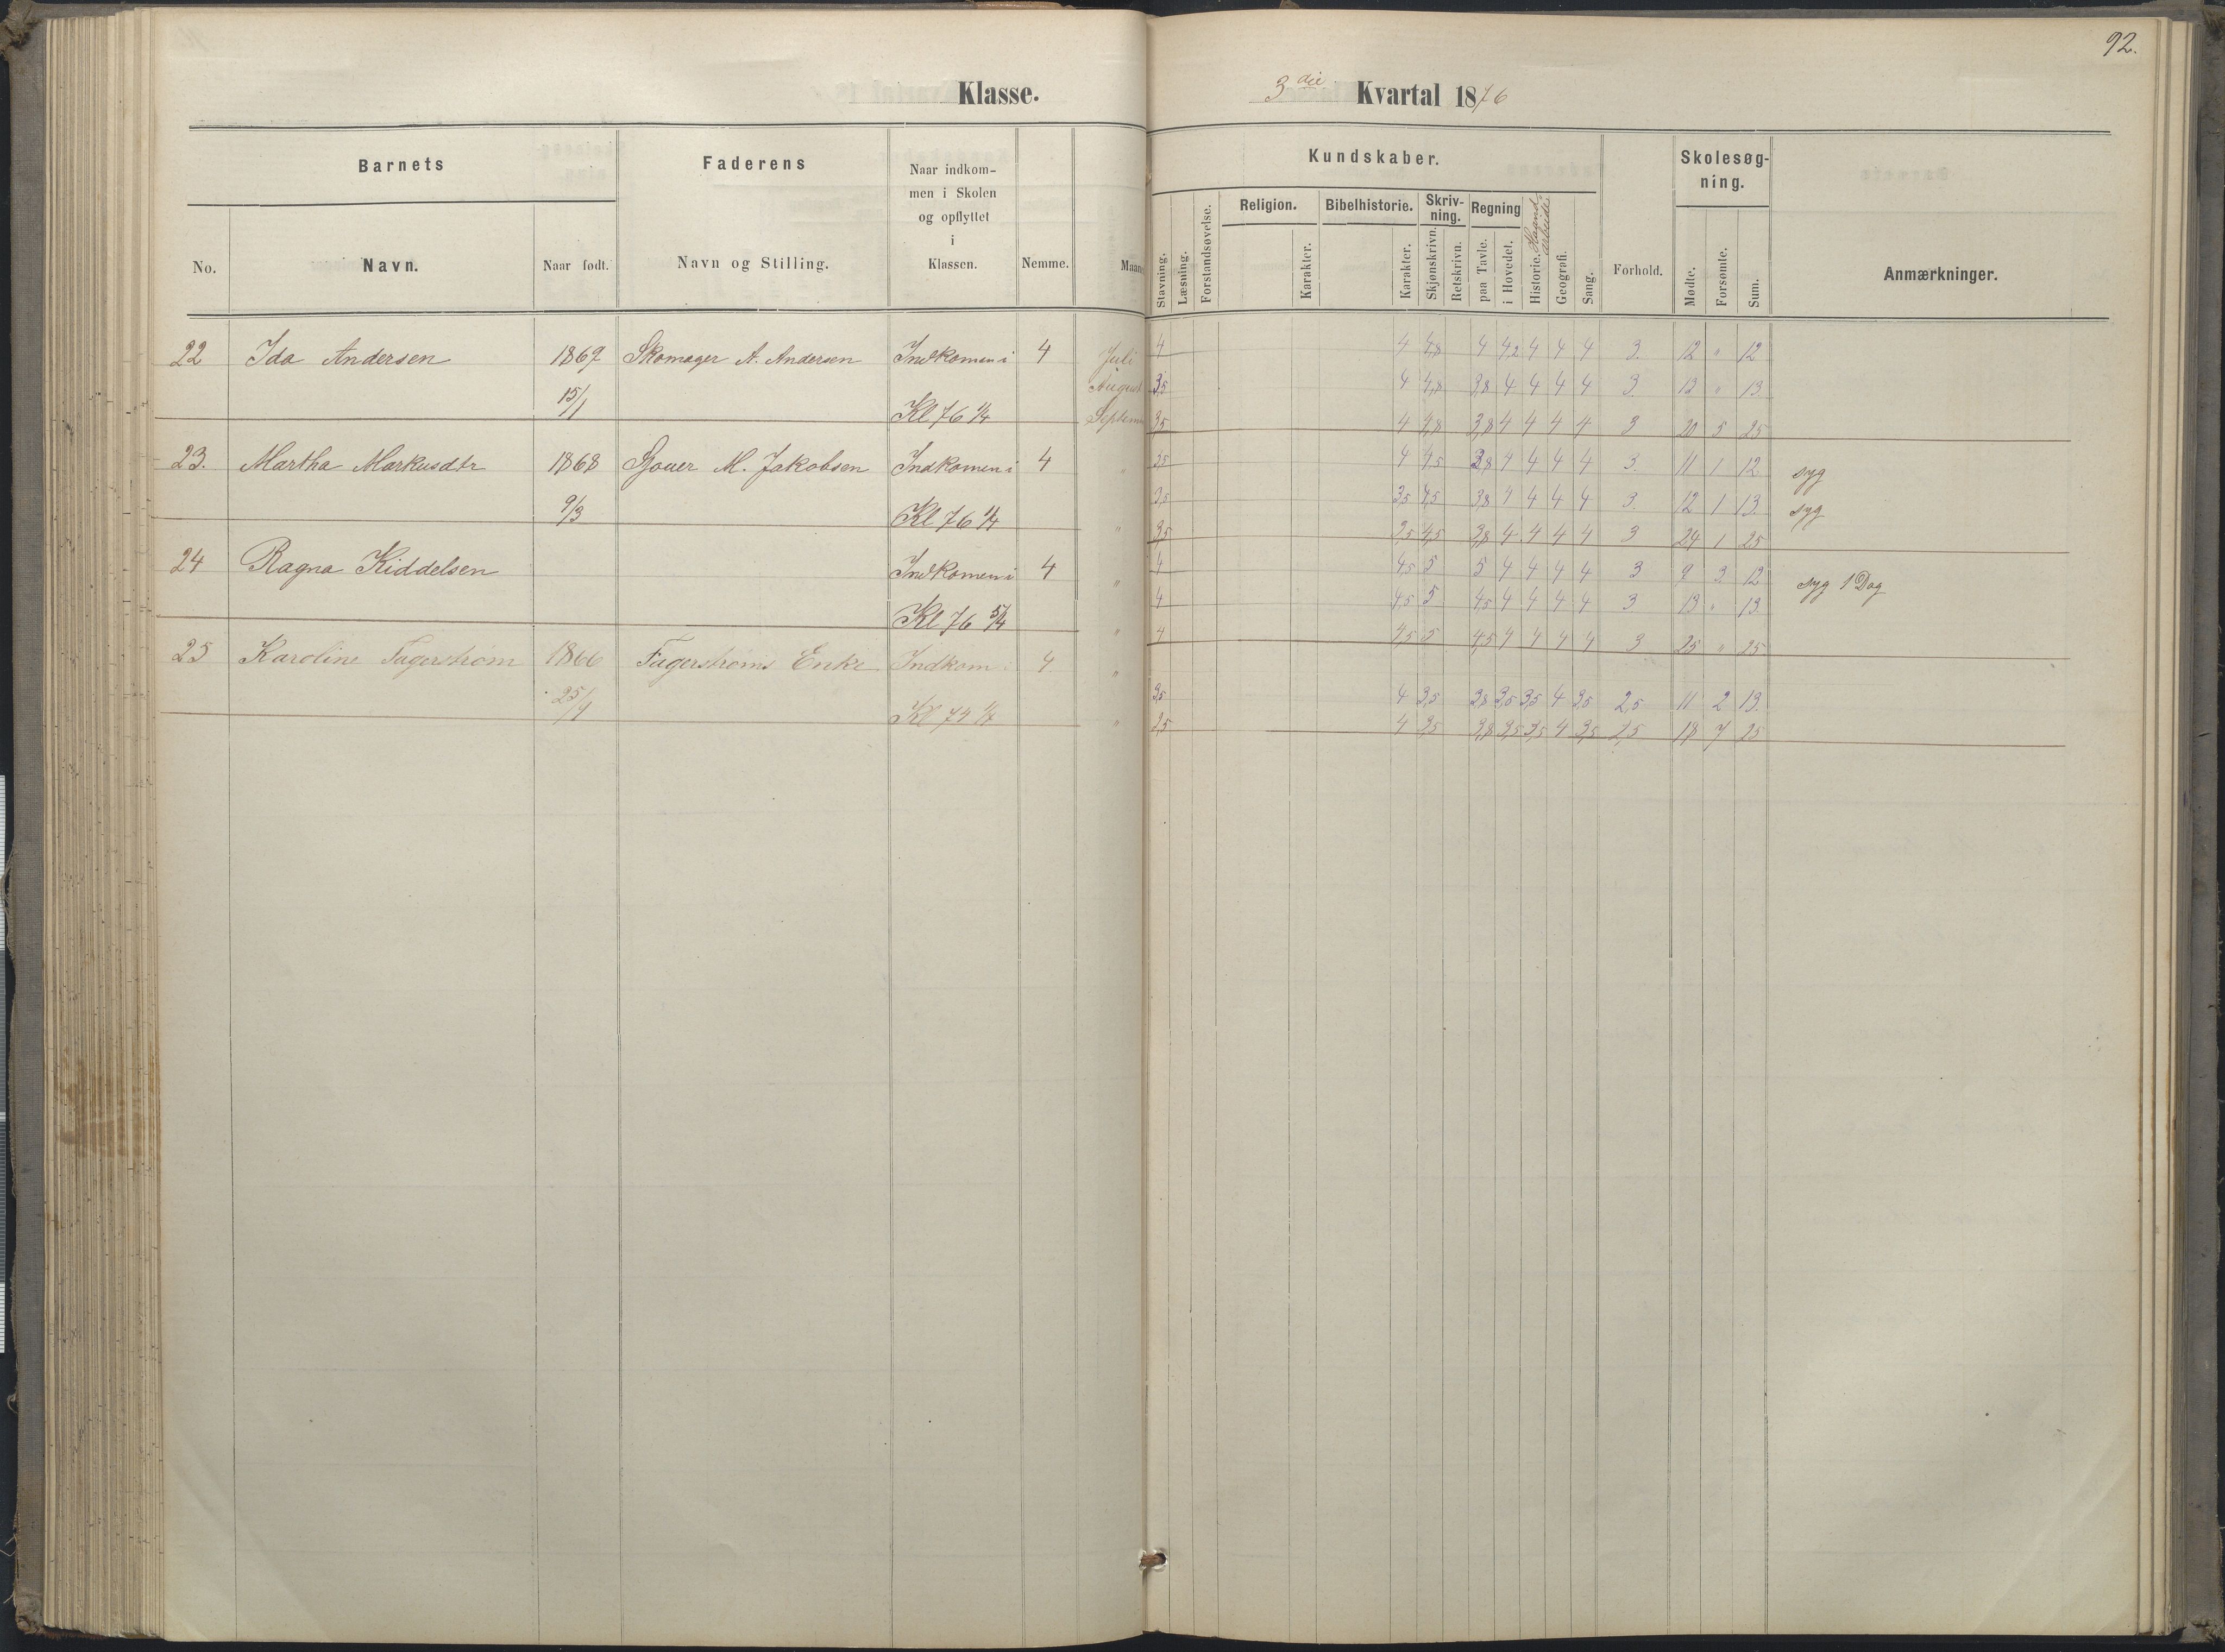 92.
Klasse.
3die Kvartal 1876
Barnets
Faderens
Naar indkom-
men i Skolen
og opflyttet
i
Klassen.
No.
Navn.
Naar født.
Navn og Stilling.
Nemme.
Kundskaber.
Skolesøg-
ning.
Stavning.
Læsning.
Forstandsøvelse.
Religion.
Karakter.
Bibelhistorie.
Karakter.
Skriv-
ning.
Skjønskrivn.
Retskrivn.
Regning
paa Tavle.
i Hovedet.
Historie.
Geografi.
Sang.
Forhold.
Mødte.
Forsømte.
Sum.
Anmærkninger.
22 Ida Andersen 1869 Skomager A. Andersen Indkomen i 4 Juli 4 4 4,8 4 4,2 4 4 4 3. 12 " 12
15/1 August 3,5 4 4,8 3,8 4 4 4 4 3. 13 " 13
Kl 76 1/4 Septem 3,5 4 4,8 3,8 4 4 4 4 3 20 5 25
23. Martha Markusdtr 1868 M. Jakobsen Indkomen i 4 " 3,5 4 4,5 3,8 4 4 4 4 3. 11 1 12 syg
9/3 3,5 3,5 4,5 3,8 4 4 4 4 3. 12 1 13 syg
Kl 76 1/4 " 3,5 3,5 4,5 3,8 4 4 4 4 3 24 1 25
24 Ragna Kiddelsen Indkomen i 4 " 4 4,5 5 5 4 4 4 4 3 9 3 12 syg 1 Dag
4 4,5 5 4,5 4 4 4 4 3 13 " 13
Kl 76 5/4 " 4 4,5 5 4,5 4 4 4 4 3 25 " 25
25 Karoline Fagerstrøm 1866 Fagerstrøms Enke Indkom 4 "
25/4 3,5 4 3,5 3,8 3,5 3,5 4 3,5 2,5 11 2 13
Kl 74 1/4 " 3,5 4 3,5 3,8 3,5 3,5 4 3,5 2,5 18 7 25